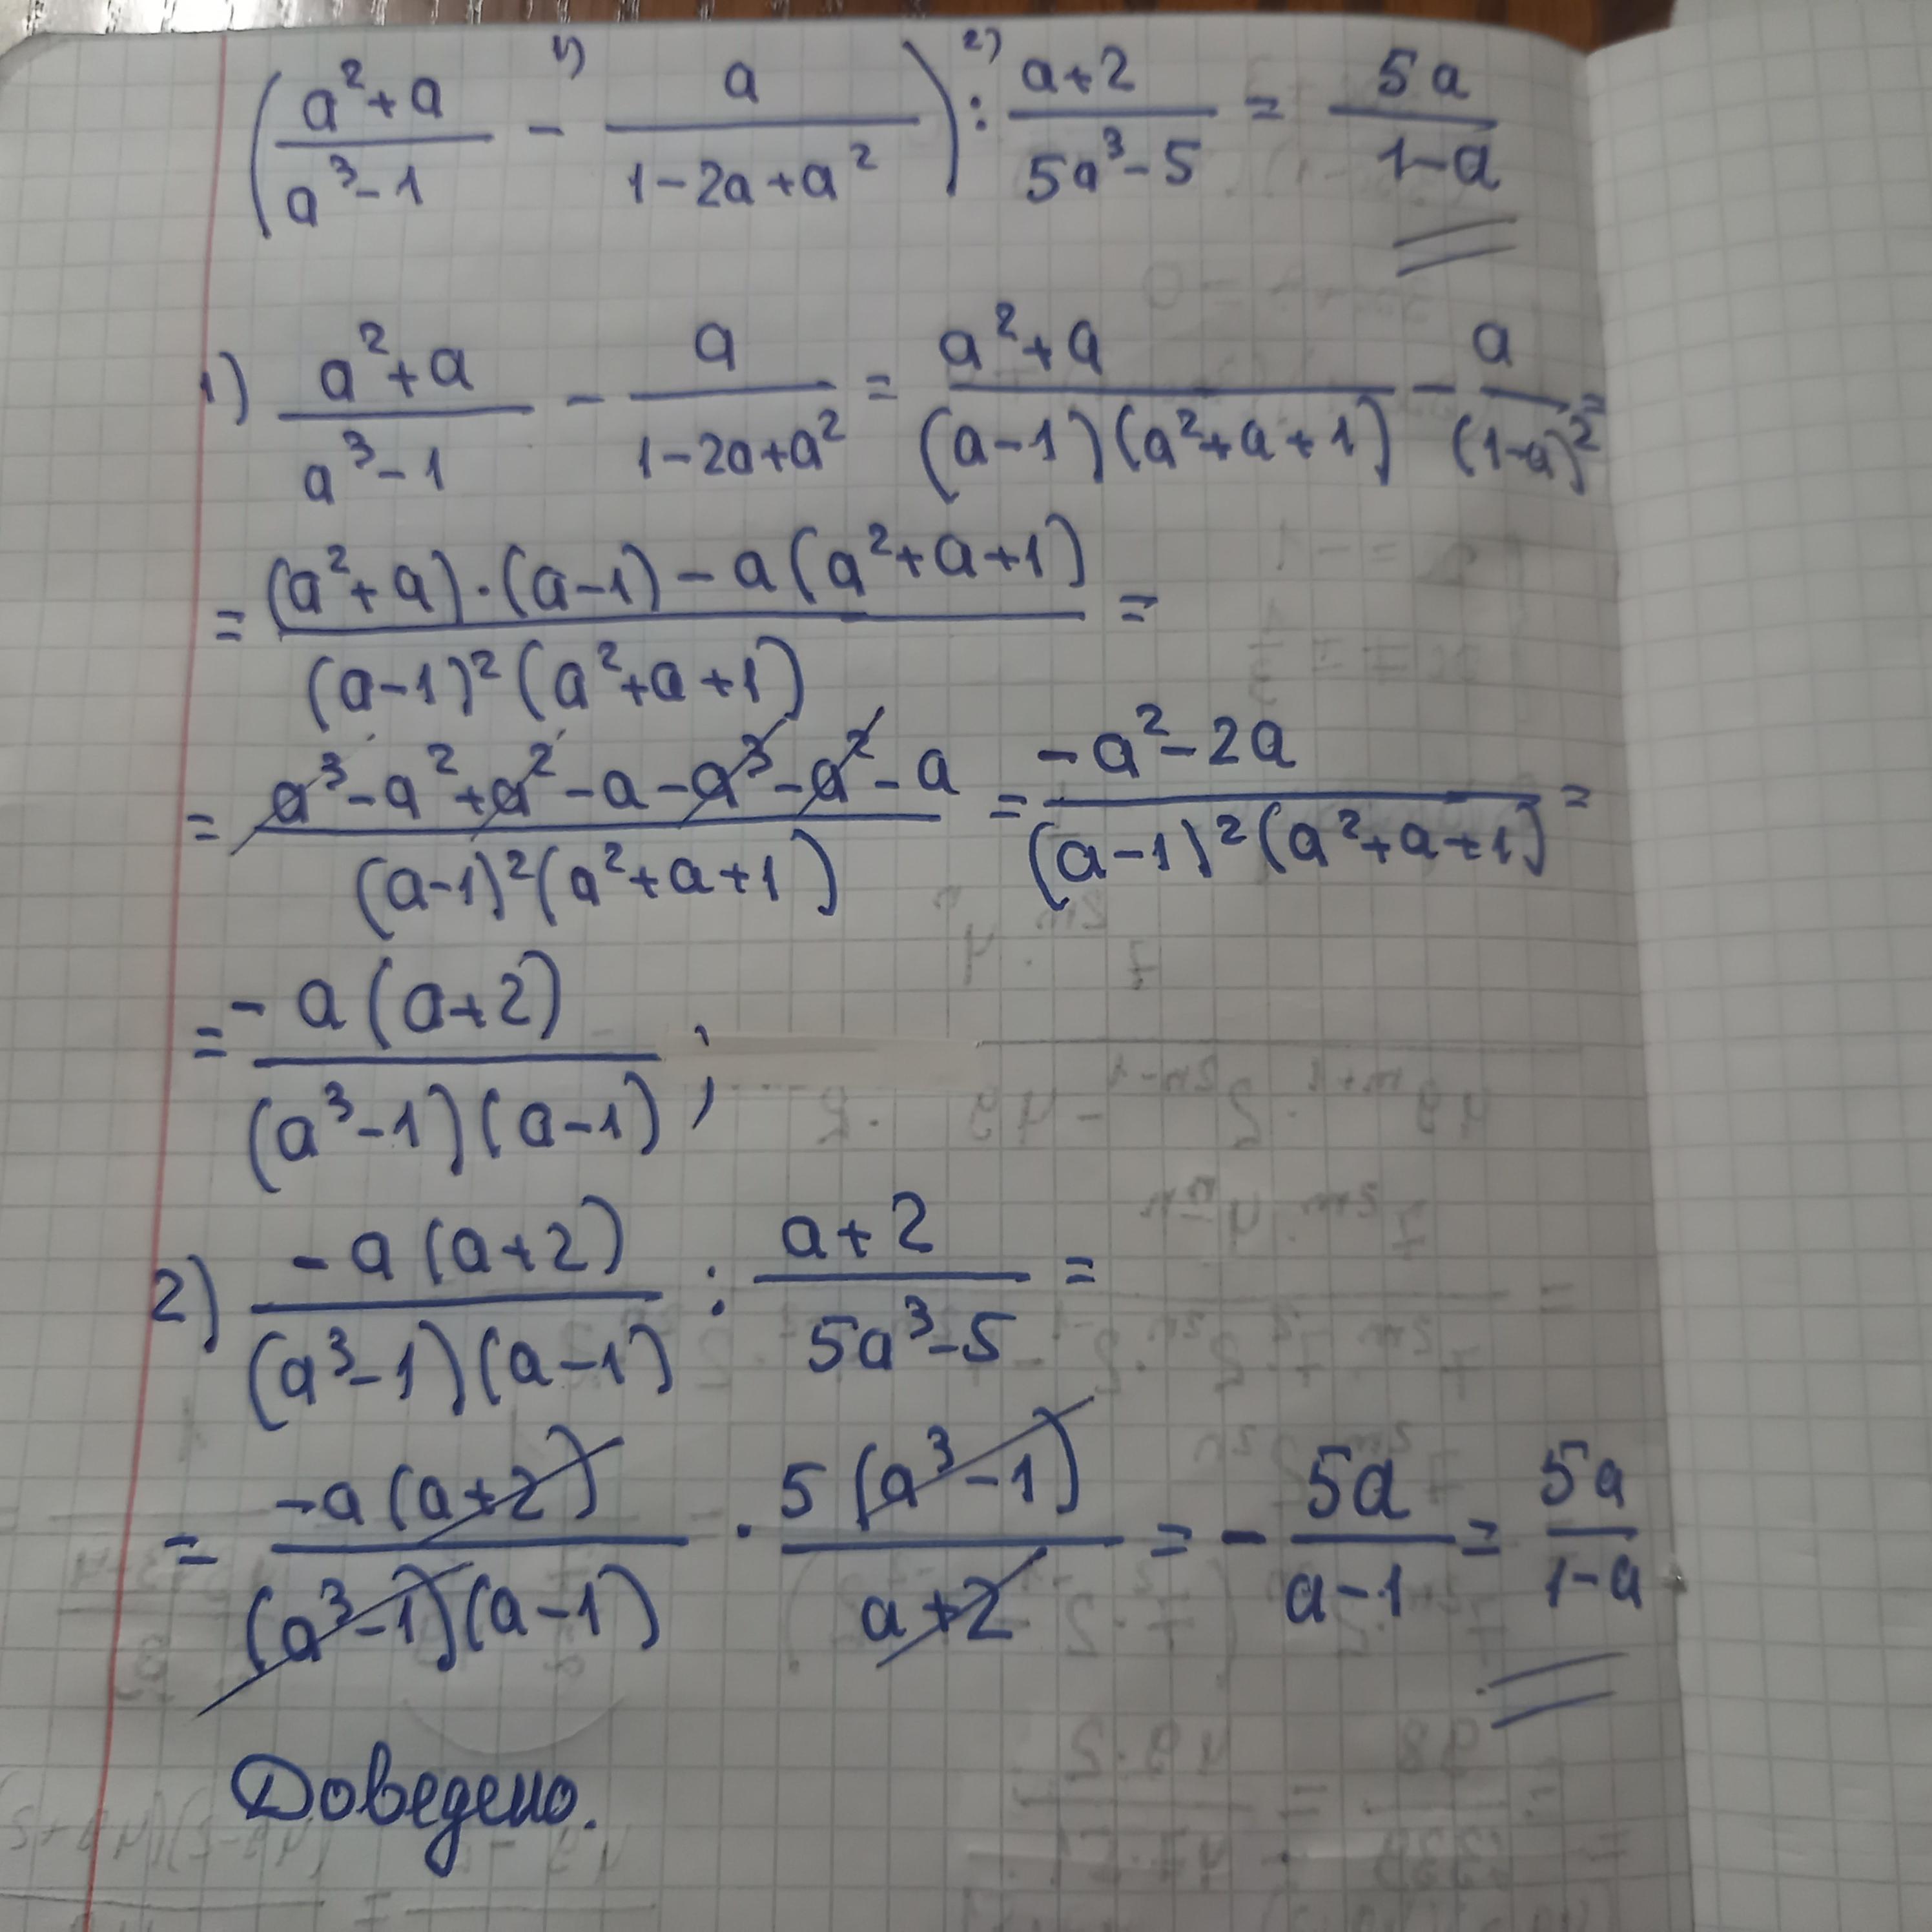 1) 2)
(a²+a / a³-1 - a / 1-2a+a²) : a+2 / 5a³-5 = 5a / 1-a
1) a²+a / a³-1 - a / 1-2a+a² = a²+a / (a-1)(a²+a+1) - a / (1-a)² =
= (a²+a)·(a-1)-a(a²+a+1) / (a-1)²(a²+a+1) =
= a³-a²+a²-a-a³-a²-a / (a-1)²(a²+a+1) = -a²-2a / (a-1)²(a²+a+1) =
= -a(a+2) / (a³-1)(a-1) ;
2) -a(a+2) / (a³-1)(a-1) : a+2 / 5a³-5 =
= -a(a+2) / (a³-1)(a-1) · 5(a³-1) / a+2 = - 5a / a-1 = 5a / 1-a
Доведено.